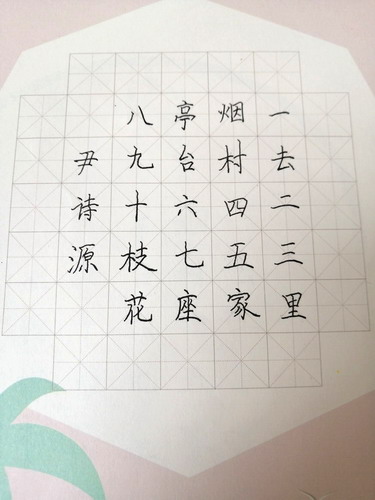 一去二三里
烟村四五家
亭台六七座
八九十枝花
尹诗源